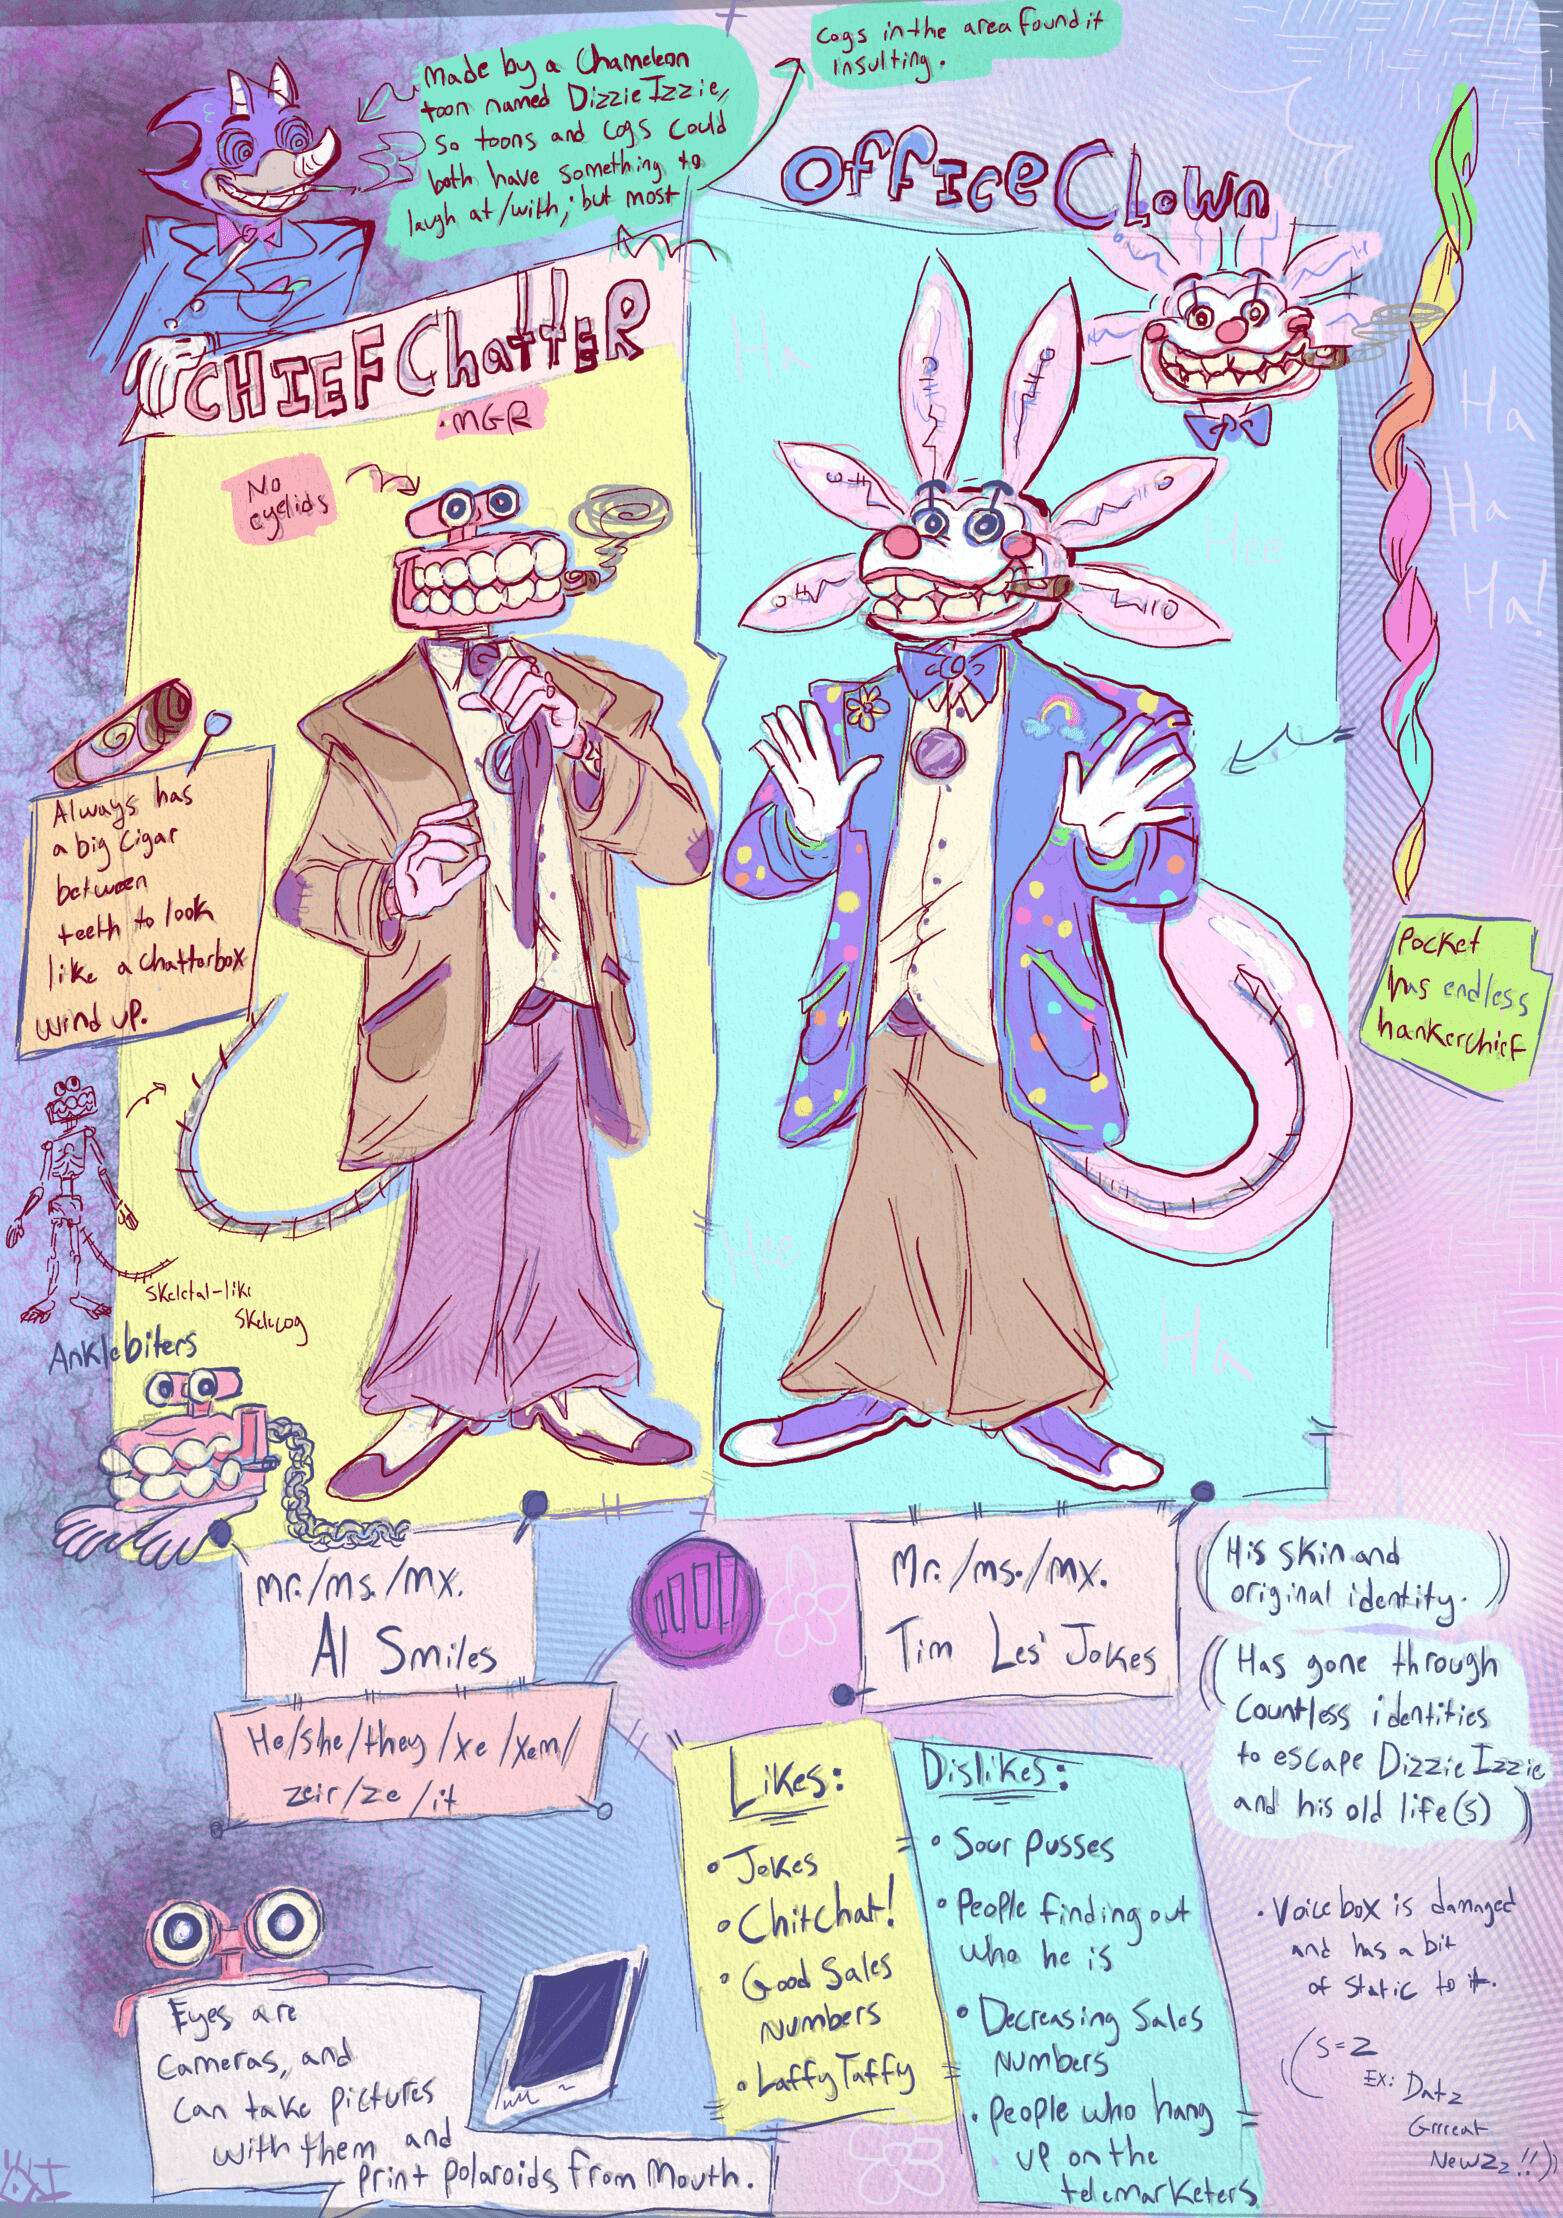 Made by a Chameleon
toon named DizzieIzzie,
so toons and cogs could
both have something to
laugh at/with, but most
Cogs in the area found it
insulting.
OFFICE CLOWN
CHIEF CHATTER
.MGR
No
eyelids
Ha
Hee
Ha
Ha
Ha!
Always has
a big cigar
between
teeth to look
like a chatterbox
wind up.
Pocket
has endless
hankerchief
Skeletal-like
Skelecog
Anklebiters
Hee
Ha
Mr./Ms./Mx.
Al Smiles
He/she/they/xe/xem/
zeir/ze/it
Mr./Ms./Mx.
Tim Les' Jokes
His skin and
original identity.
Has gone through
countless identities
to escape DizzieIzzie
and his old life(s)
Likes:
• Jokes
• ChitChat!
• Good Sales
Numbers
• LaffyTaffy
Dislikes:
• Sour pusses
• People finding out
who he is
• Decreasing Sales
Numbers
• People who hang
up on the
telemarketers
• Voicebox is damaged
and has a bit
of static to it.
(S=Z
Ex: Datz
Grrreat
Newzz!!)
Eyes are
cameras, and
can take pictures
with them and
print polaroids from mouth.